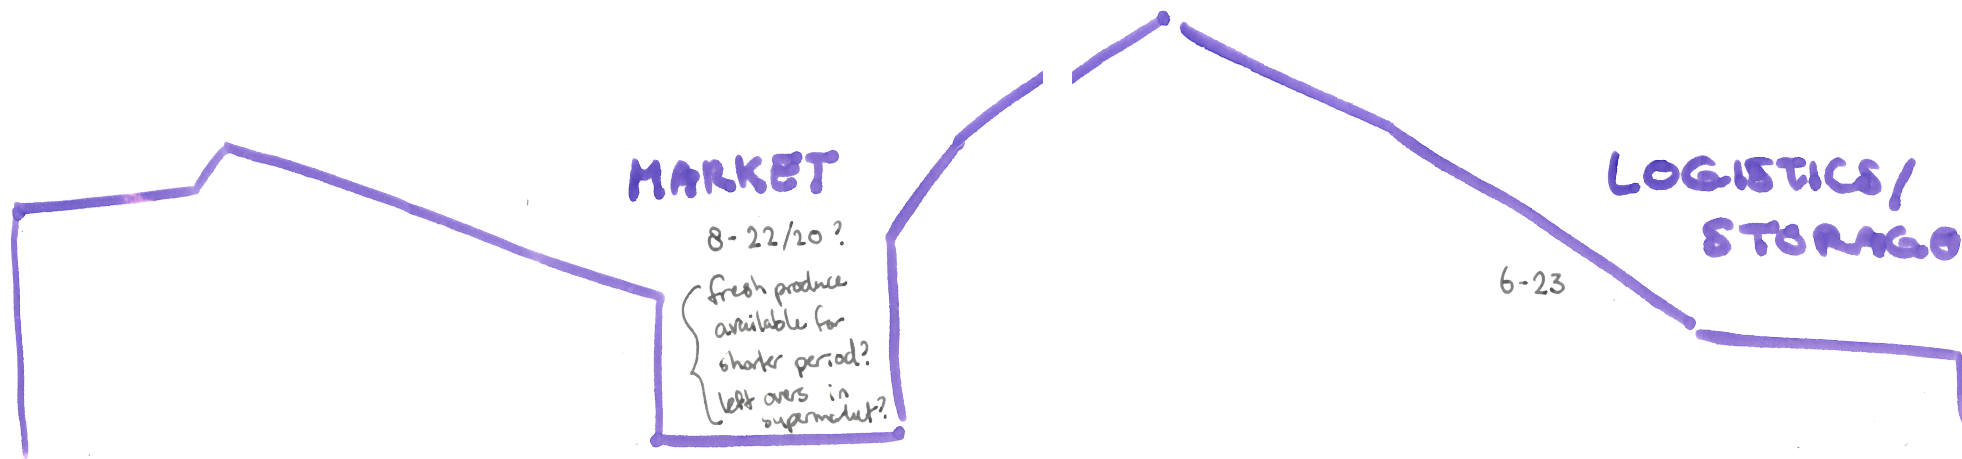 MARKET
8-22/20?
fresh produce
available for
shorter period?
left overs in
supermarket?
LOGISTICS/
STORAGE
6-23